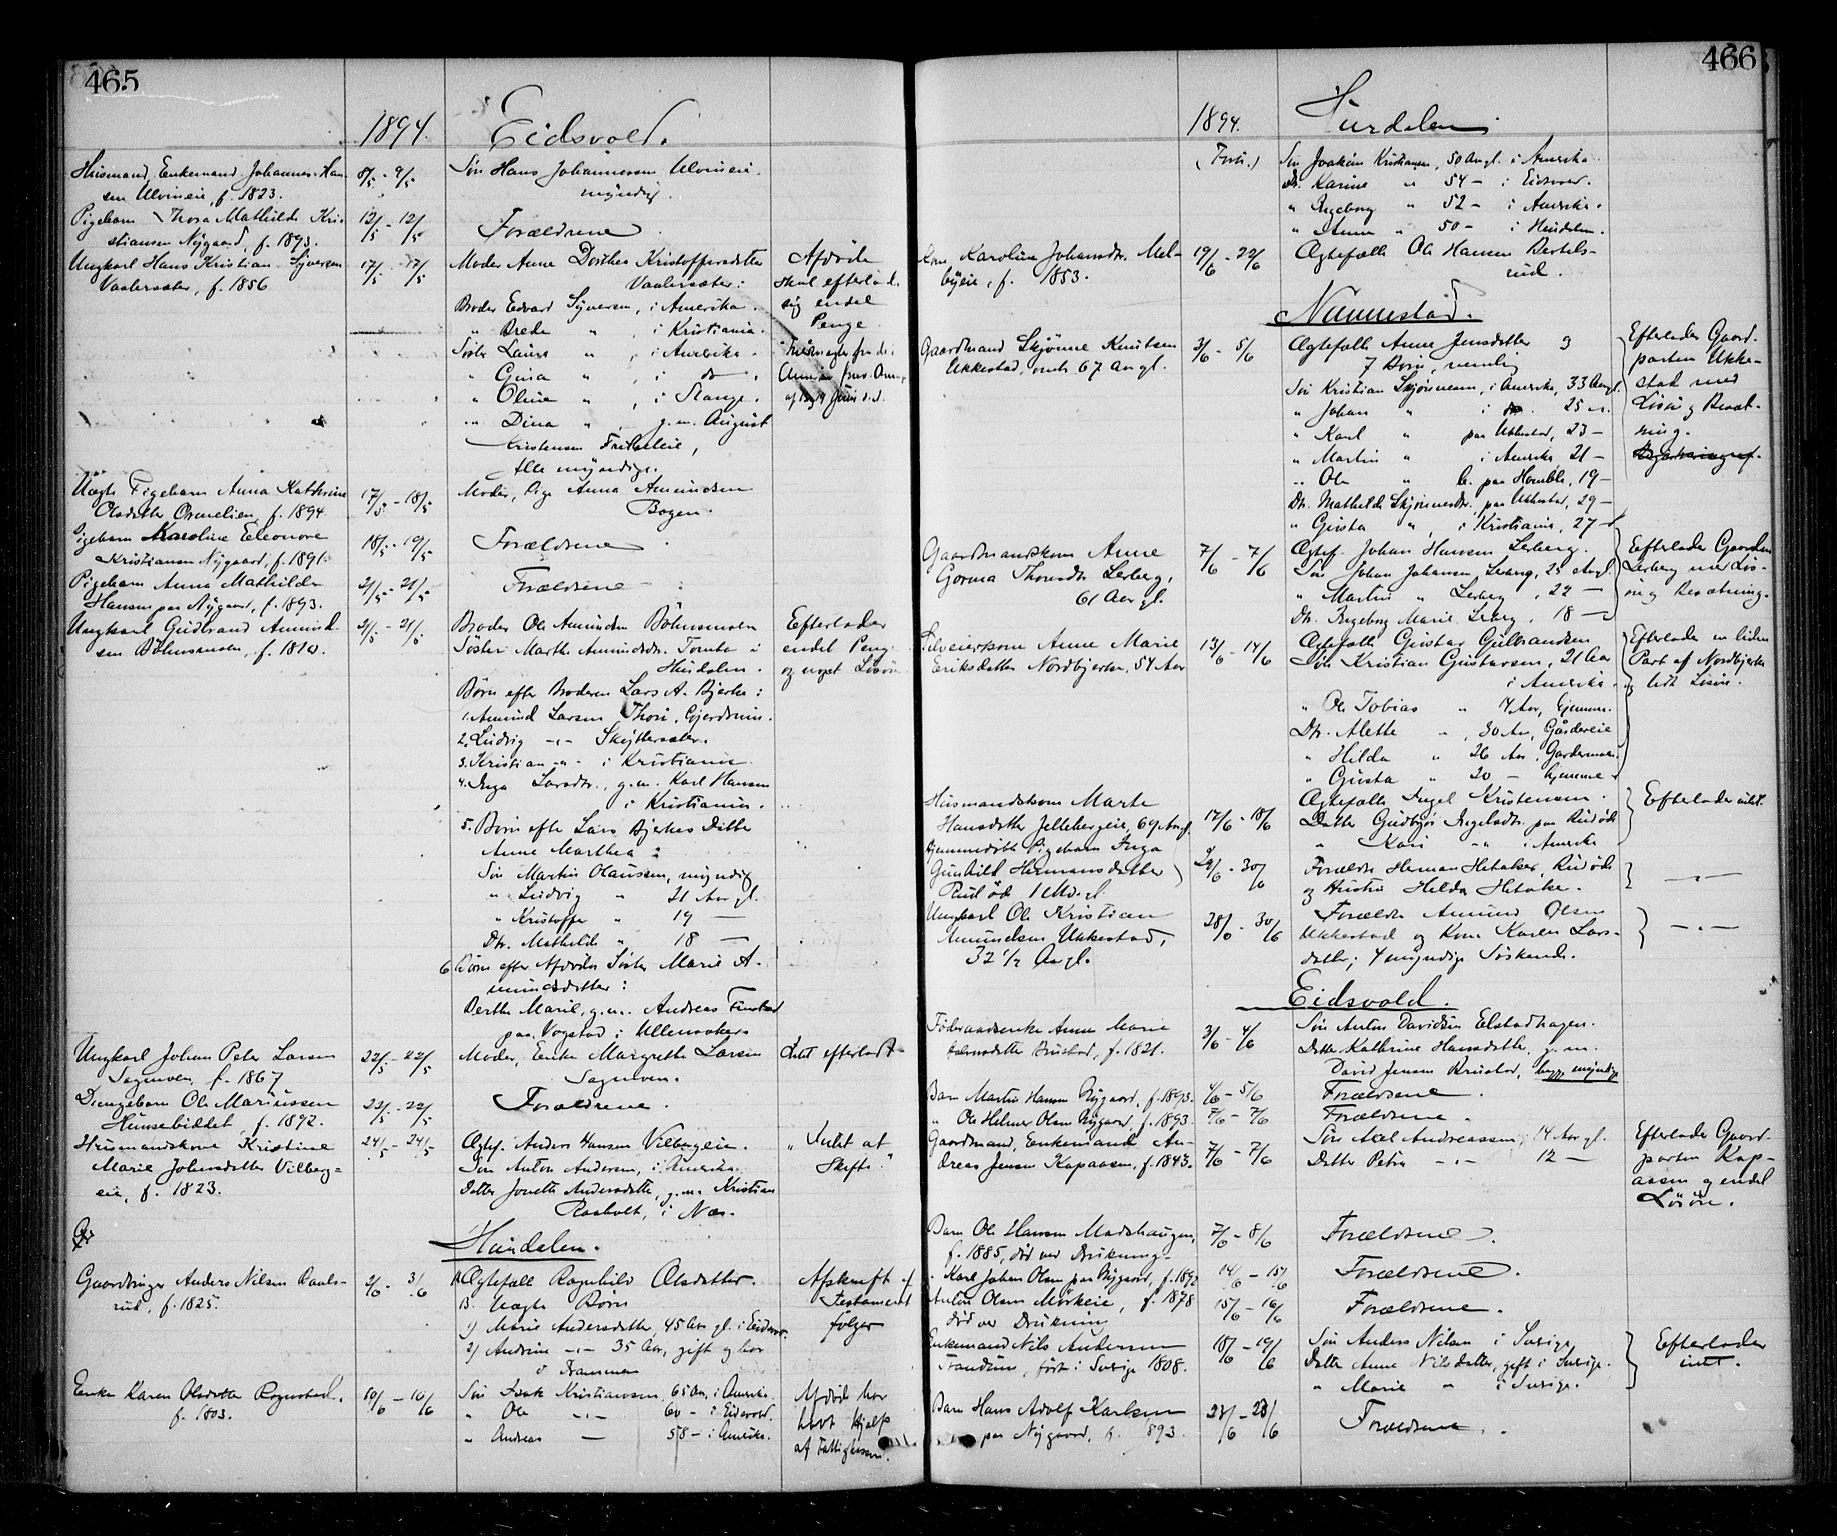 465
1894. Eidsvold.
Husmand, Enkemand Johannes Han-
sen Ulvineie, f. 1823.
8/5 - 9/5
Søn Hans Johannessen Ulvineie.
myndig.
Pigebarn Thora Mathilde Kri-
stiansen Nygaard, f. 1893.
12/5 - 12/5
Forældrene
Ungkarl Hans Kristian Syversen
Vaalersæter, f. 1856
17/5 - 17/5
Moder Anne Dorthea Kristoffersdatter
Vaalersæter:
Broder Edvard Syversen, i Amerika.
" Brede " , i Kristiania.
Søster Laura " , i Amerika.
" Gina " , i do
" Oline " , i Stange.
" Dina " , g. m. August
Kristensen
Alle myndige.
Afdøde
skal efterlade
sig endel
Penge
Uægte Pigebarn Anna Kathrine
Olsdatter Ormelien, f. 1894
17/5 - 18/5
Moder, Pige Anna Amundsen
Bogen.
Pigebarn Karoline Eleonore
Kristiansen Nygaard, f. 1891.
18/5 - 19/5
Forældrene
Pigebarn Anna Mathilde
Hansen paa Nygaard, f. 1893.
21/5 - 21/5
Forældrene
Ungkarl Gudbrand Amund-
sen Bøhnsmoen, f. 1810.
21/5 - 21/5
Broder Ole Amundsen Bøhnsmoen
Søster Marthe Amundsdtr. Tomte i
Hurdalen.
Børn efter Broderen Lars A. Bjerke:
1. Amund Larsen Thori, Gjerdrum.
2. Ludvig -"- Skyttersæter.
3. Kristian -"- i Kristiania.
4. Inga Larsdtr., g. m. Karl Hansen
i Kristiania.
5. Børn efter Lars Bjerkes Datter
Anne Marthea:
Søn Martin Olaussen, myndig
" Ludvig " 21 Aar gl.
" Kristoffer " 19 —
Dtr. Mathilde " 18 —
6 Børn efter Afdødes Søster Marie A-
mundsdatter:
Berthe Marie, g. m. Andreas
paa Vogstad i Ullensaker.
Efterlader
endel Penge
og noget Løsøre
Ungkarl Johan Peter Larsen
Sagmoen, f. 1867
22/5 - 22/5
Moder, Enke Margrethe Larsen
Sagmoen.
Intet efterladt.
Drengebarn Ole Mariussen
f. 1892.
22/5 - 22/5
Forældrene.
Husmandskone Kristine
Marie Johnsdatter Vilberg-
eie, f. 1823.
24/5 - 24/5
Ægtef. Anders Hansen Vilbergeie.
Søn Anton Andersen, i Amerika.
Datter Jonette Andersdatter, g. m. Kristian
Raaholt, i Næs.
"Intet at
Skifte."
Hurdalen.
Gaardbruger Anders Nilsen Rauls-
rud, f. 1825.
2/6 - 3/6
A Ægtefælle Ragnhild Olsdatter.
B. Uægte Børn
1) Marie Andersdatter 45 Aar gl. i Eidsvold.
2) Andrine -"- 35 Aar, gift og bor
i Drammen
Afskrift af
Testament
følger
Enke Karen Olsdatter Rognstad.
f. 1803.
10/6 - 10/6
Søn Isak Kristiansen 65 Aar, i Amerika.
" Ole -"- 60 - i Eidsvold.
" Andreas — 58 - i Amerika.
Afdøde har
havt Hjælp
af Fattigkassen.
466
1894. Hurdalen
(Forts.)
Søn Joakim Kristiansen, 50 Aar gl. i Amerika.
Dt. Karine " 54 - i Eidsvold.
" Ingeborg " 52 - i Amerika.
" Anne " 50 - i Hurdalen.
Kone Karoline Johannesdtr. Mel-
byeie, f. 1853.
19/6 - 22/6
Ægtefælle Ole Hansen Bertels-
rud.
Nannestad.
Gaardmand Skjønne Knutsen
Ukkestad, omtr. 67 Aar gl.
3/6 - 5/6
Ægtefælle Anne Jensdatter og
7 Børn, nemlig
Søn Kristian Skjønnesen, i Amerika, 33 Aar gl.
" Johan " i do. 25 —
" Karl " paa Ukkestad, 23 —
" Martin " i Amerika 21 —
" Ole " paa Homble, 19 —
Dtr. Mathilde Skjønnesdtr. paa Ukkestad, 29 —
" Gusta " , i Kristiania, 27 —
Efterlader Gaard-
parten Ukke-
stad med
Løsøre og Besæt-
ning.
Gaardmandskone Anne
Gorina Thomsdtr. Lerberg,
61 Aar gl.
7/6 - 7/6
Ægtef. Johan Hansen Lerberg.
Søn Johan Johansen Lerberg, 25 Aar gl.
" Martin " Lerberg , 22 —
Dtr. Ingeborg Marie Lerberg, 18 —
Efterlader Gaarden
Lerberg med Løs-
øre og Besætning.
Selveierkone Anne Marie
Eriksdatter Nordbjerke, 54 Aar
13/6 - 14/6
Ægtefælle Gustav Gulbrandsen
Søn Kristian Gustavsen, 21 Aar
i Amerika.
" Ole Tobias " 14 Aar, hjemme.
Dtr. Alette " , 30 Aar, Gårdereie
" Hilda " 26 Aar, Gardermoen
" Gusta " 20 — hjemme
Efterlader en liden
Part af Nordbjerke
og lidt Løsøre.
Husmandskone Marte
Hansdatter Jellebergeie, 69 Aar gl.
17/6 - 18/6
Ægtefælle Ingel Kristensen.
Datter Gudbjør Ingelsdtr. paa Rudød
" Kari -"- i Amerika
Efterlader intet.
Hjemmedøbt Pigebarn Inga
Gunhild Hermansdatter
Rudød 1 Md. gl.
29/6 - 30/6
Forældre Herman Hetaker, Rudød
og Hustru Hilda Hetaker.
—"—
Ungkarl Ole Kristian
Amundsen Ukkestad,
32 1/2 Aar gl.
28/6 - 30/6
Forældre Amund Olsen
Ukkestad og Kone Karen Lars-
datter; 4 myndige Søskende.
—"—
Eidsvold.
Føderaadsenke Anne Marie
Brustad, f. 1821.
3/6 - 4/6
Søn Anton Davidsen Elstadhagen.
Datter Kathrine Hansdatter, g. m.
David Jensen Brustad, begge myndige
Barn Martin Hansen Nygaard, f. 1893.
4/6 - 5/6
Forældrene.
" Ole Helmer Olsen Nygaard, f. 1893.
7/6 - 7/6
Forældrene.
Gaardmand, Enkemand An-
dreas Jensen Kapaasen, f. 1843.
7/6 - 7/6
Søn Axel Andreassen, 14 Aar gl.
Datter Petra -"- 12 —
Efterlader Gaard-
parten Kap-
aasen og endel
Løsøre.
Barn Ole Hansen Madshaugen,
f. 1885, død ved Drukning.
7/6 - 8/6
Forældrene.
" Karl Johan Olsen paa Nygaard, f. 1892
14/6 - 15/6
Forældrene.
Anton Olsen Mørkeie, f. 1878
død ved Drukning
15/6 - 16/6
Forældrene.
Enkemand Nils Andersen
Trandum, født i Sverige 1808.
18/6 - 19/6
Søn Anders Nilsen i Sverige
Datter Anne Nilsdatter, gift i Sverige.
" Marie " i Sverige.
Efterlader
intet.
Barn Hans Adolf Karlsen
paa Nygaard, f. 1893.
23/6 - 23/6
Forældrene.